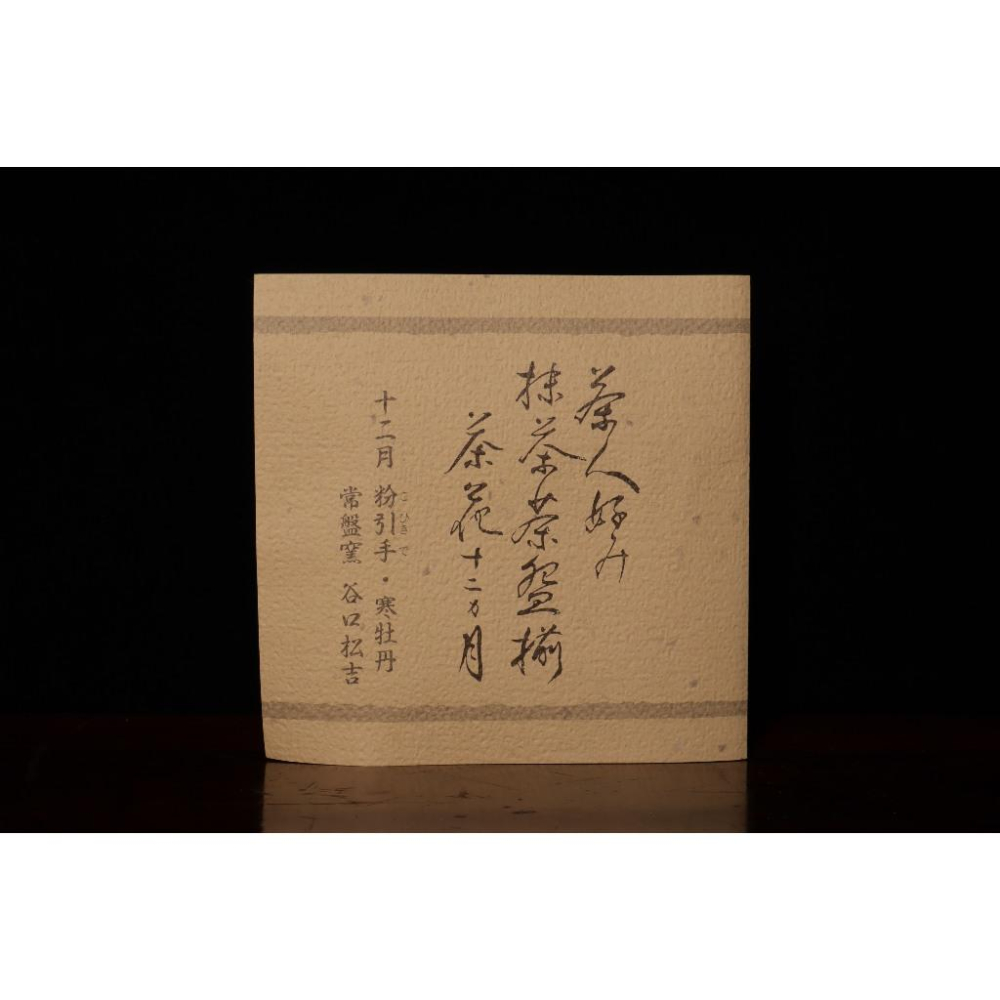 茶人好み
抹茶茶盌揃
茶花十二カ月
十二月 粉引手・寒牡丹
こひきで
常盤窯 谷口松吉